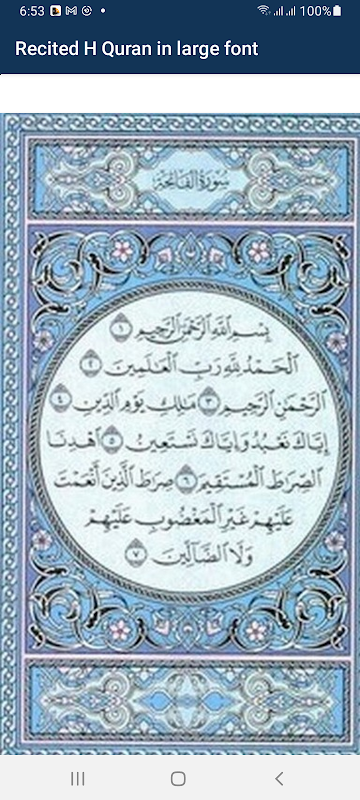 6:53
100%
Recited H Quran in large font
سُورَةُ الفَاتِحَةِ
بِسْمِ اللَّهِ الرَّحْمَٰنِ الرَّحِيمِ ١
الْحَمْدُ لِلَّهِ رَبِّ الْعَالَمِينَ ٢
الرَّحْمَٰنِ الرَّحِيمِ ٣ مَالِكِ يَوْمِ الدِّينِ ٤
إِيَّاكَ نَعْبُدُ وَإِيَّاكَ نَسْتَعِينُ ٥ اهْدِنَا
الصِّرَاطَ الْمُسْتَقِيمَ ٦ صِرَاطَ الَّذِينَ أَنْعَمْتَ
عَلَيْهِمْ غَيْرِ الْمَغْضُوبِ عَلَيْهِمْ
وَلَا الضَّالِّينَ ٧